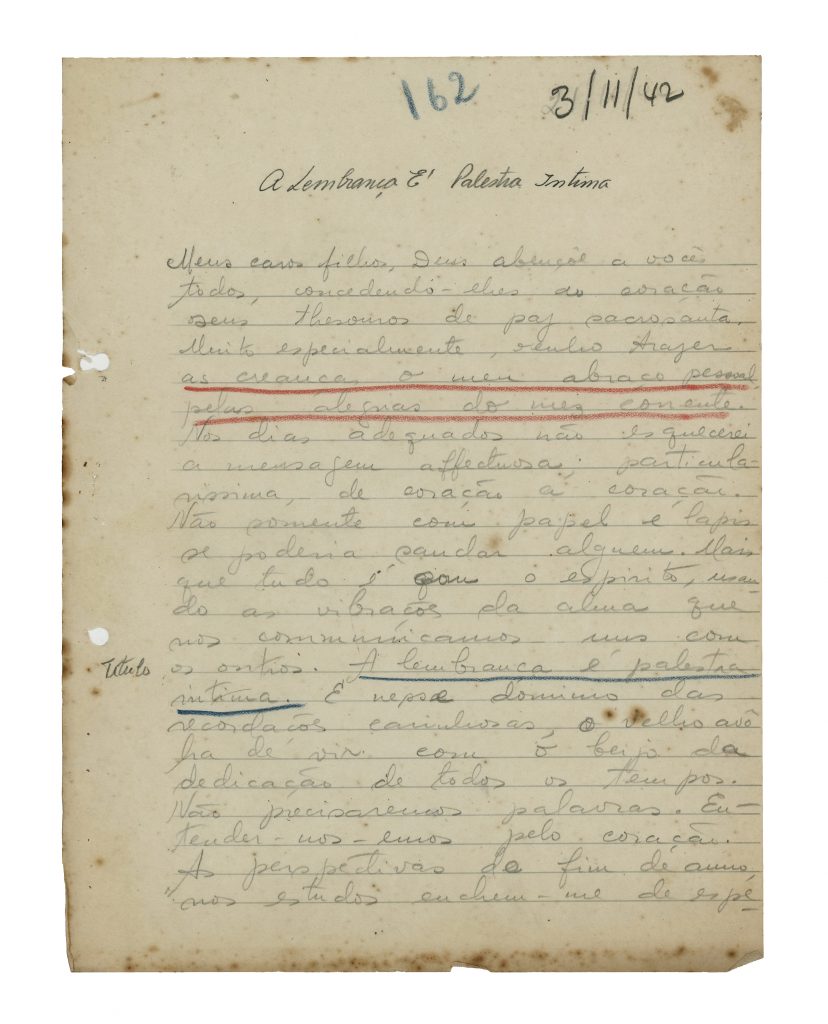 162
3/11/42
A Lembrança E' Palestra Intima
Meus caros filhos, Deus abençôe a vocês
todos, concedendo-lhes ao coração
seus thesouros de paz sacrosanta.
Muito especialmente, venho trazer
as creanças o meu abraço pessoal
pelas alegrias do mez corrente.
Nos dias adequados não esquecerei
a mensagem affectuosa, particula-
rissima, de coração a coração.
Não somente com papel e lapis
se poderia saudar alguem. Mais
que tudo é com o espirito, usan-
do as vibrações da alma que
nos communicamos uns com
Titulo
os outros. A lembrança é palestra
intima. E nesse dominio das
recordações carinhosas, o velho avô
ha de vir com o beijo da
dedicação de todos os tempos.
Não precisaremos palavras. En-
tender-nos-emos pelo coração.
As perspectivas de fim de anno,
nos estudos enchem-me de espe-